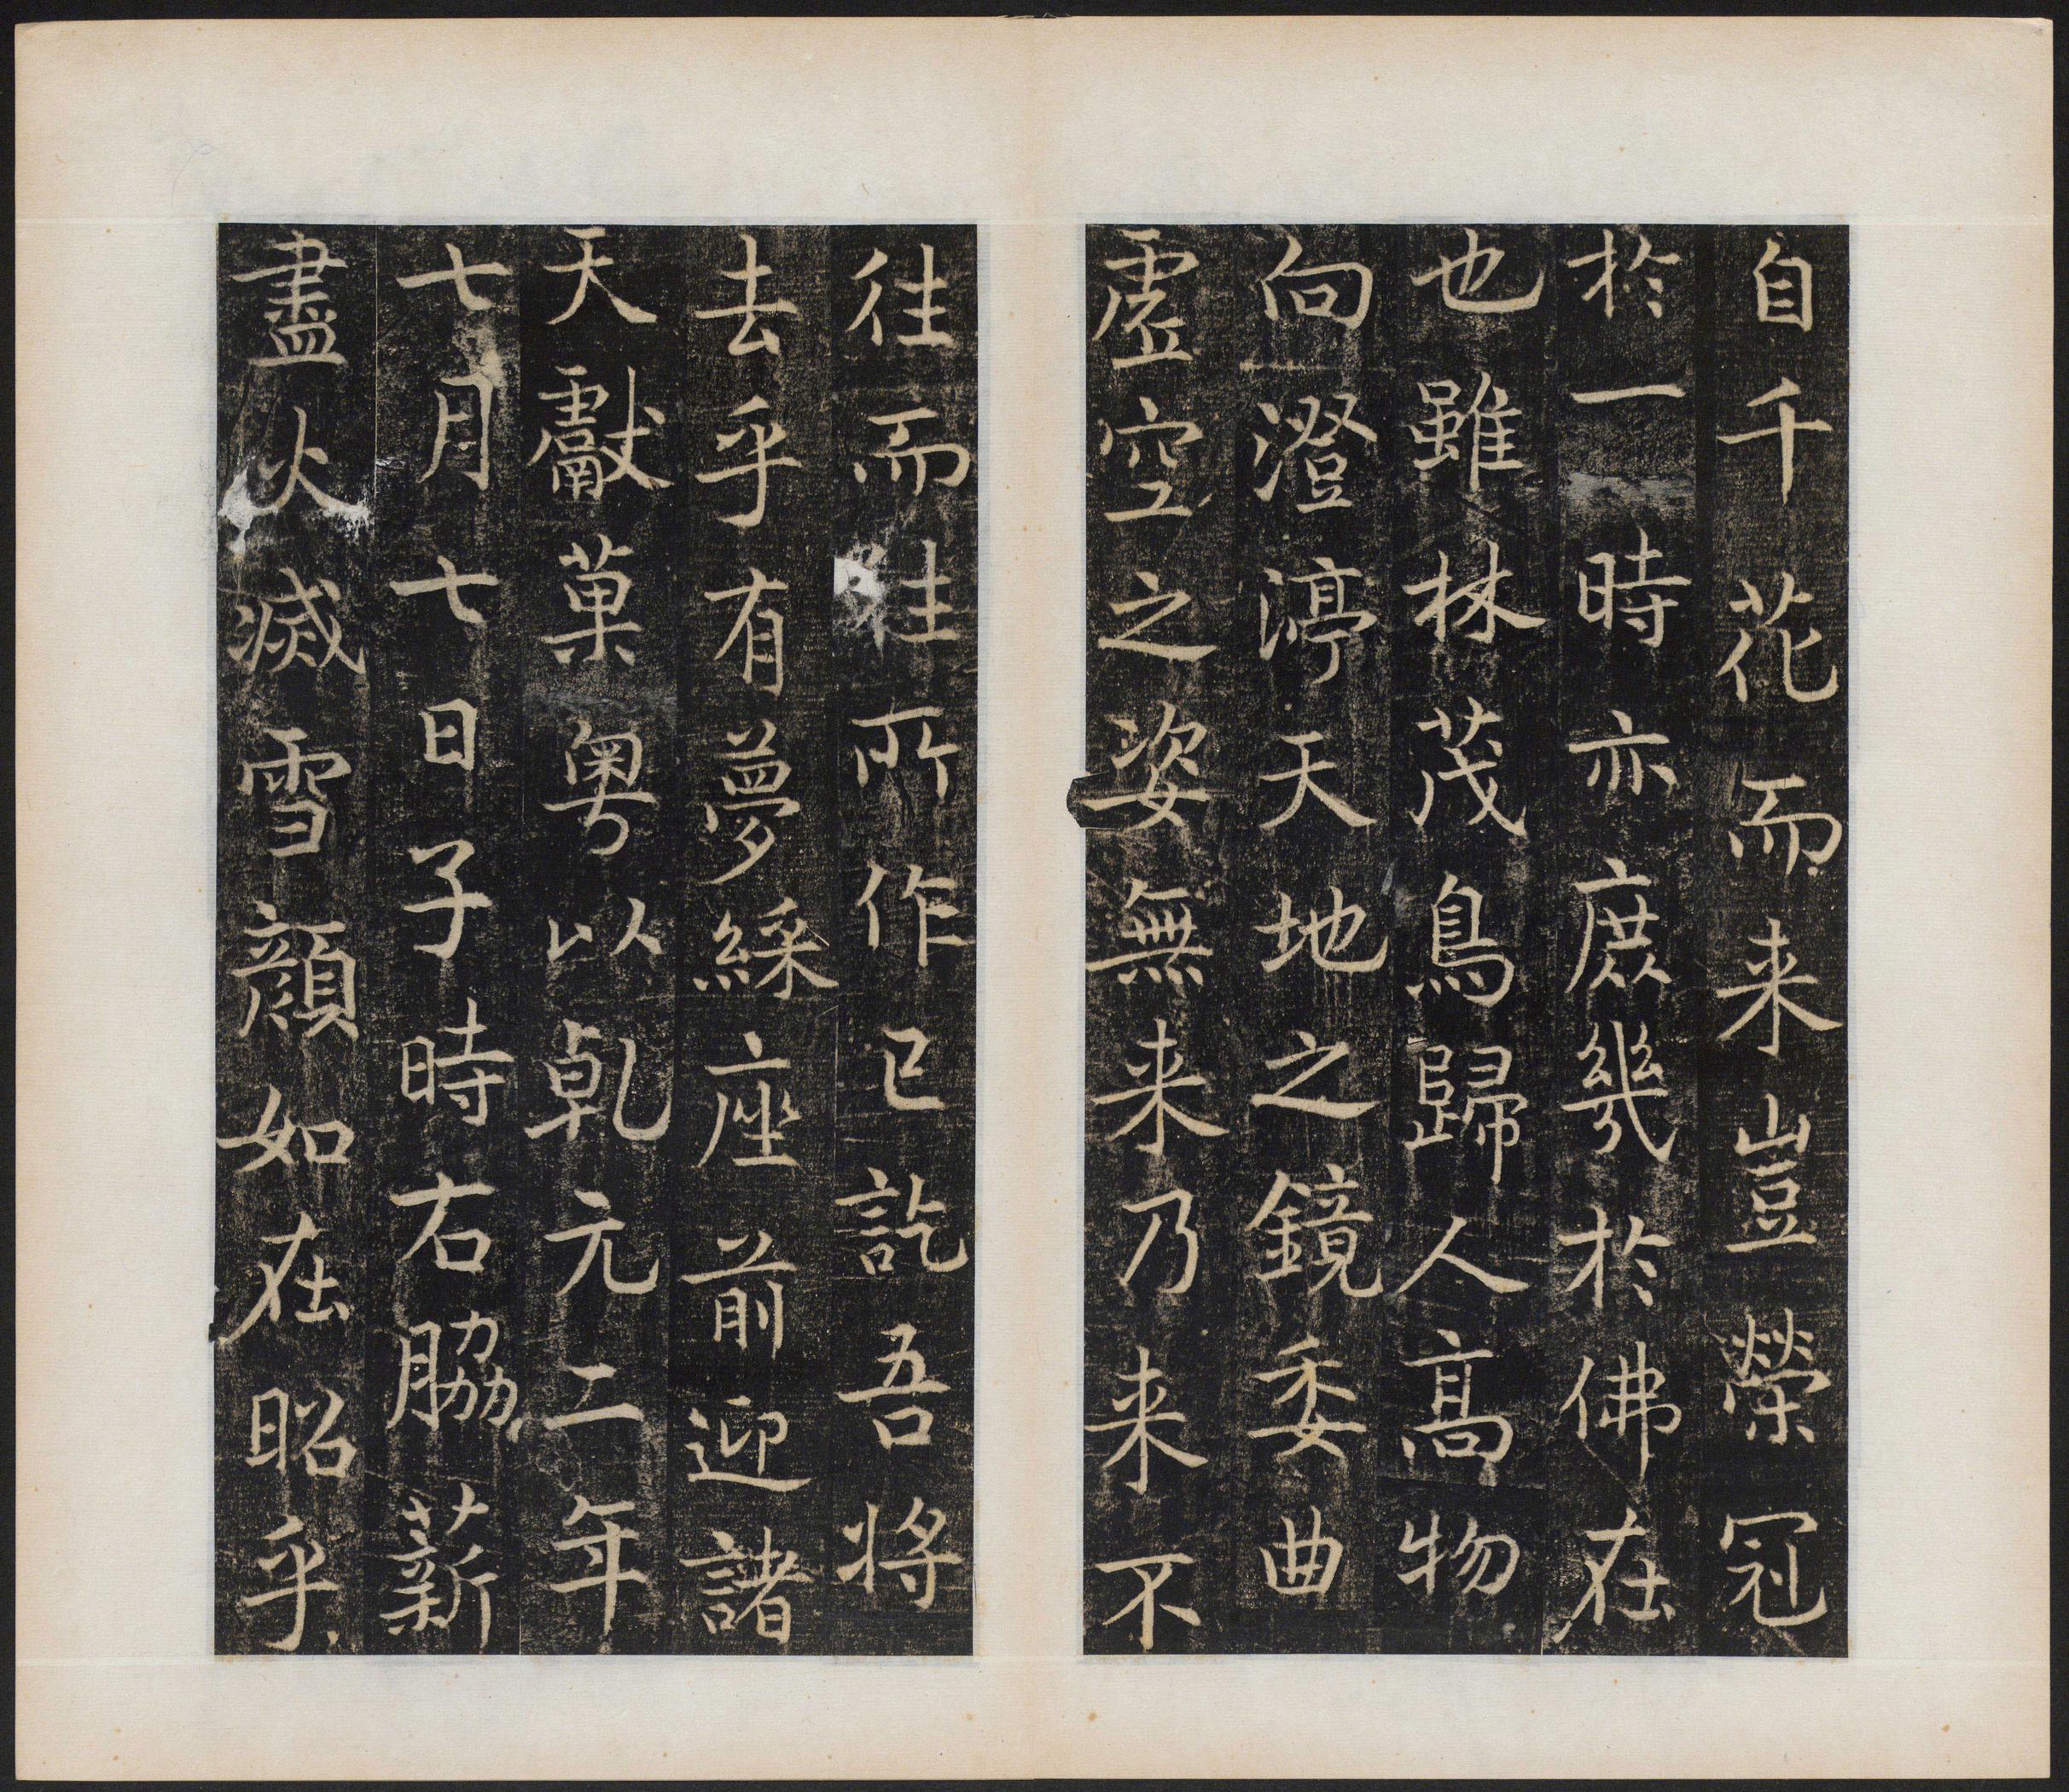 自千花而来豈榮冠
於一時亦庶幾於佛在
也雖林茂鳥歸人髙物
向澄渟天地之鏡委曲
虛空之姿無来乃来不
往而往所作已訖吾將
去乎有夢綵座前迎諸
天獻菓粵以乾元二年
七月七日子時右脇薪
盡火滅雪顏如在昭乎